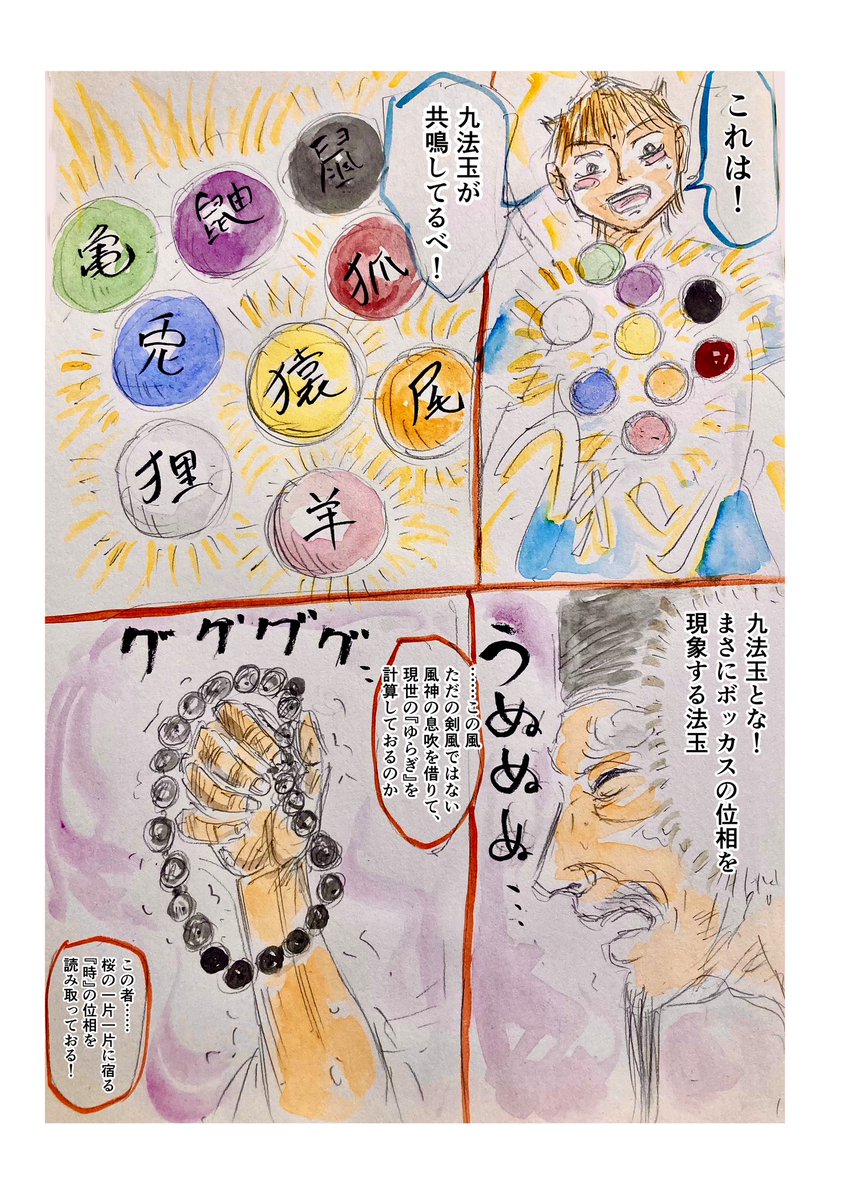 これは！
九法玉が
共鳴してるべ！
鼠
鼬
亀
狐
兎
猿
尾
狸
羊
九法玉とな！
まさにボッカスの位相を
現象する法玉
うぬぬぬ…
……この風
ただの剣風ではない
風神の息吹を借りて、
現世の『ゆらぎ』を
計算しておるのか
ググググ…
この者……
桜の一片一片に宿る
『時』の位相を
読み取っておる！